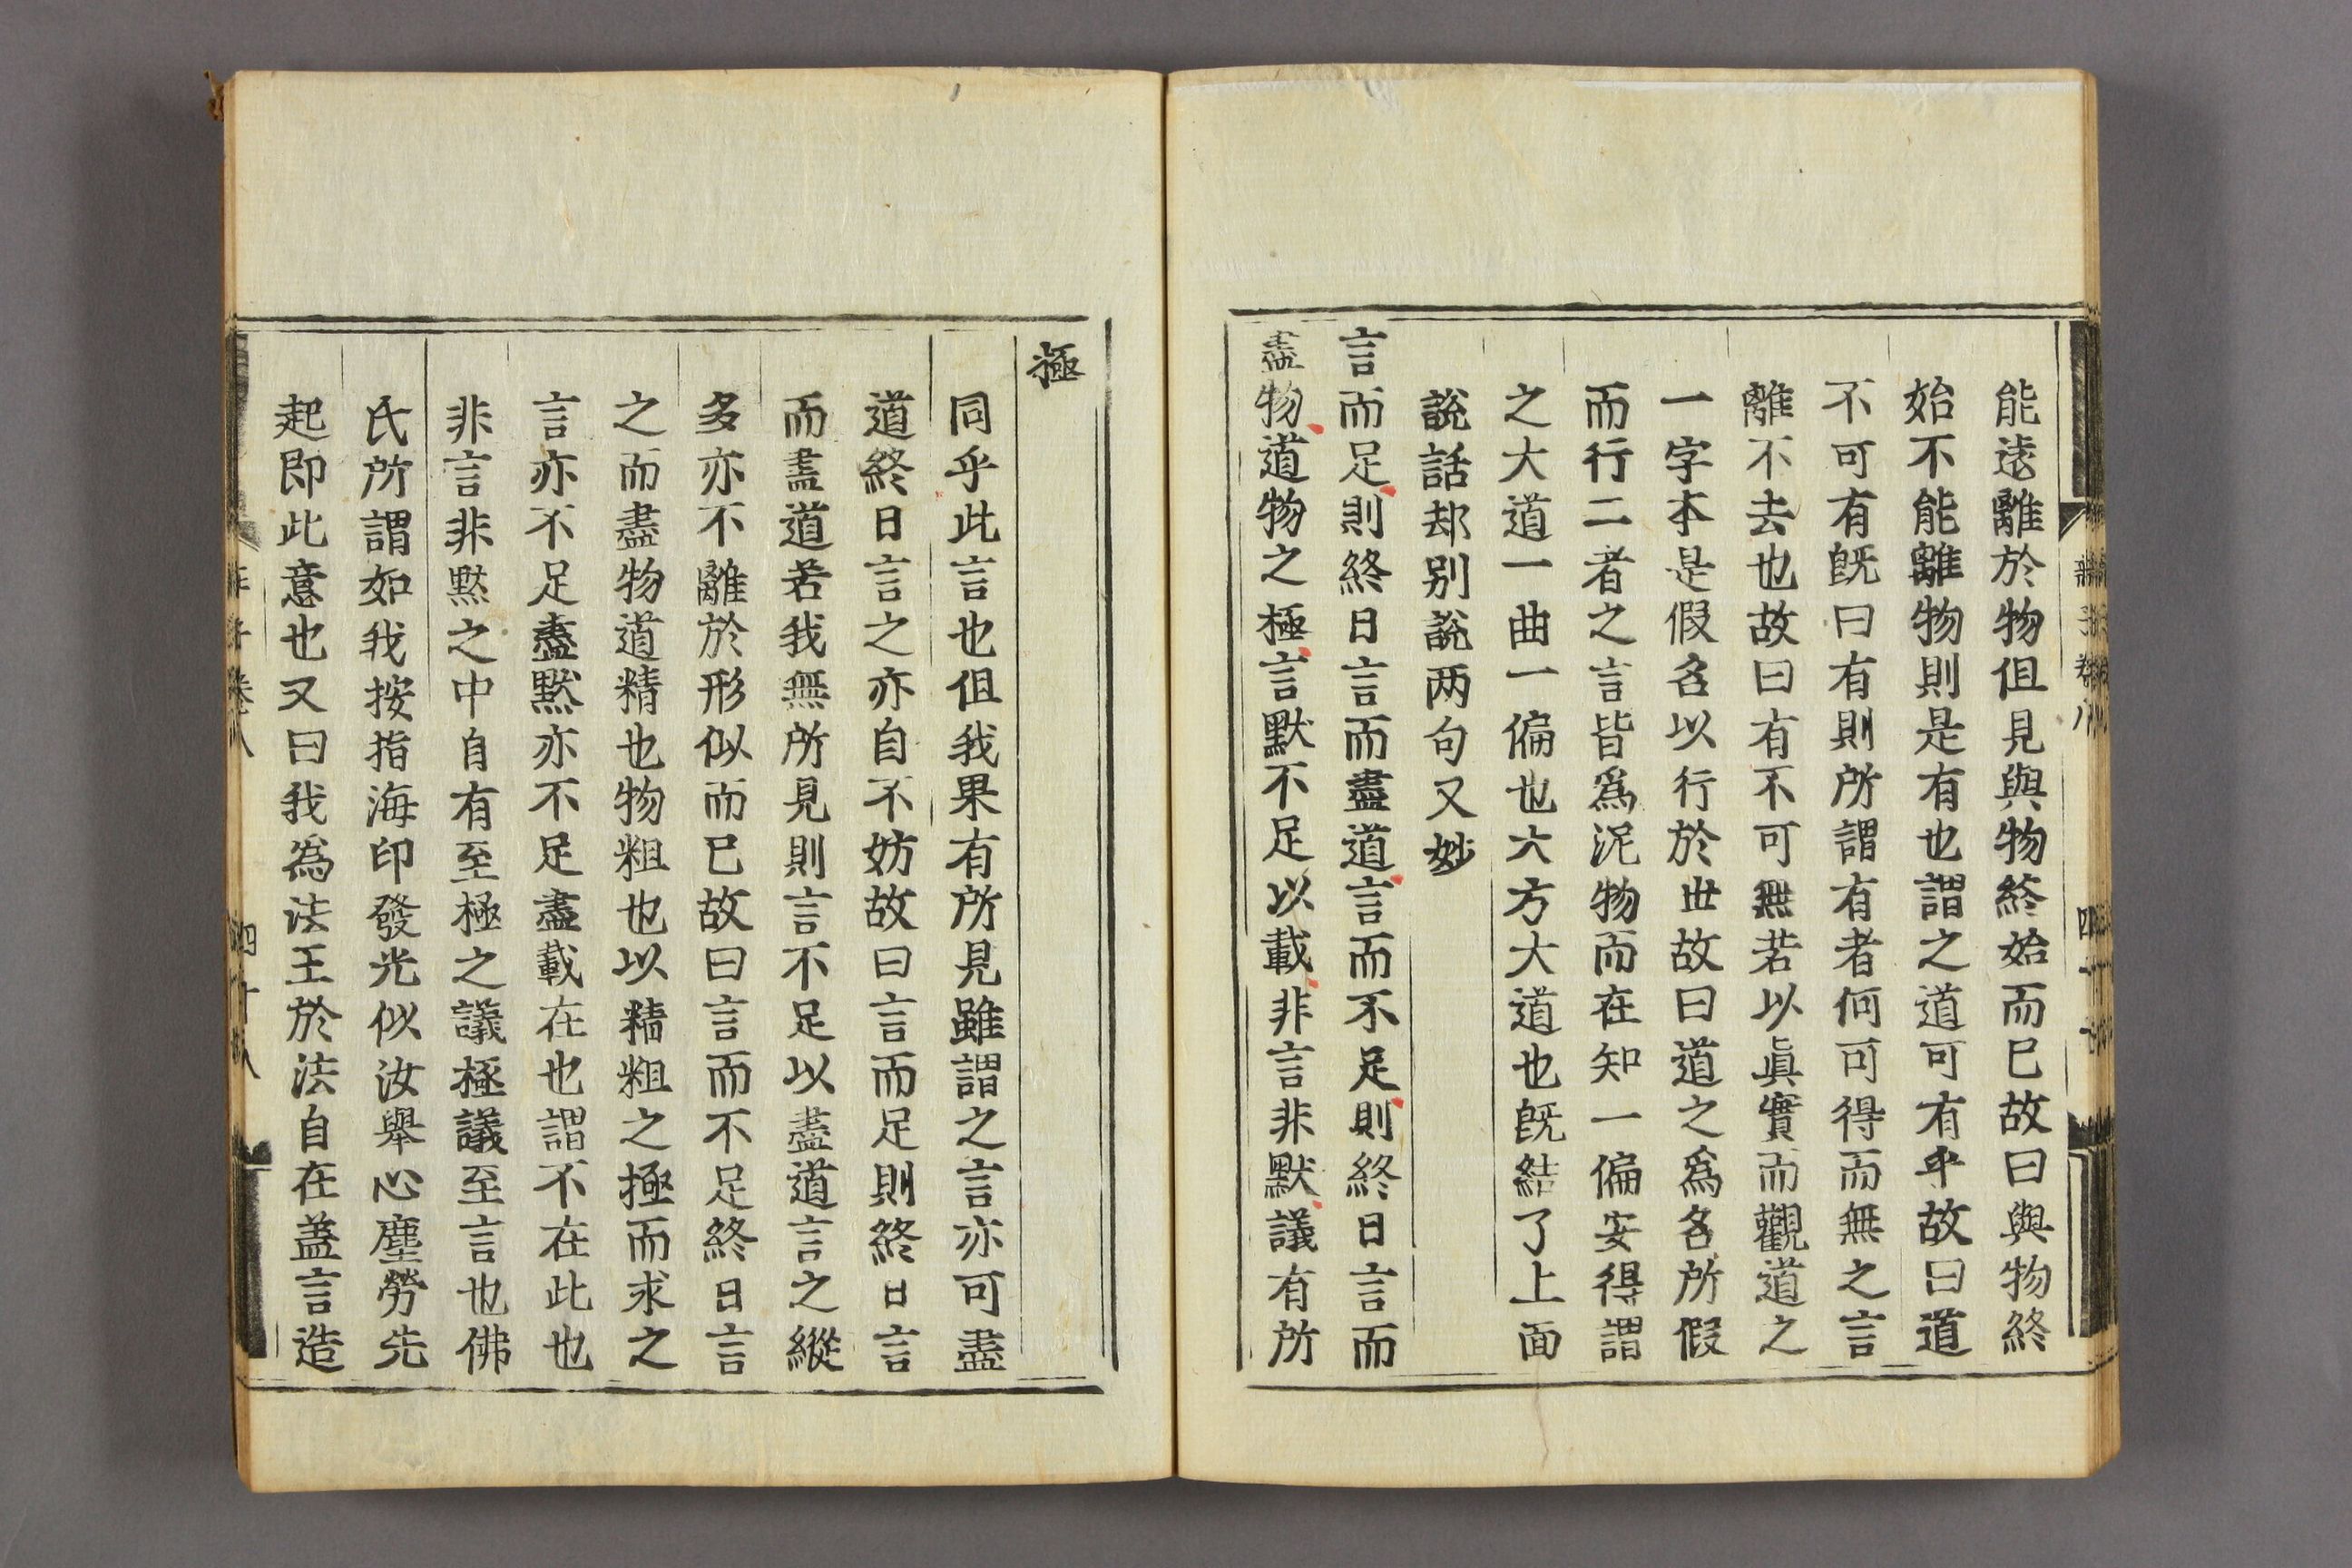 能逺離於物伹見與物終始而已故曰與物終
始不能離物則是有也謂之道可有乎故曰道
不可有旣曰有則所謂有者何可得而無之言
離不去也故曰有不可無若以眞實而觀道之
一字本是假名以行於丗故曰道之爲名所假
而行二者之言皆爲泥物而在知一偏安得謂
之大道一曲一偏也六方大道也旣結了上面
說話却别說两句又妙
言而足則終日言而盡道言而不足則終日言而
盡物道物之極言默不足以載非言非默議有所
極
同乎此言也伹我果有所見雖謂之言亦可盡
道終日言之亦自不妨故曰言而足則終日言
而盡道若我無所見則言不足以盡道言之縱
多亦不離於形似而已故曰言而不足終日言
之而盡物道精也物粗也以精粗之極而求之
言亦不足盡默亦不足盡載在也謂不在此也
非言非默之中自有至極之議極議至言也佛
氏所謂如我按指海印發光似汝舉心塵勞先
起即此意也又曰我為法王於法自在盖言造